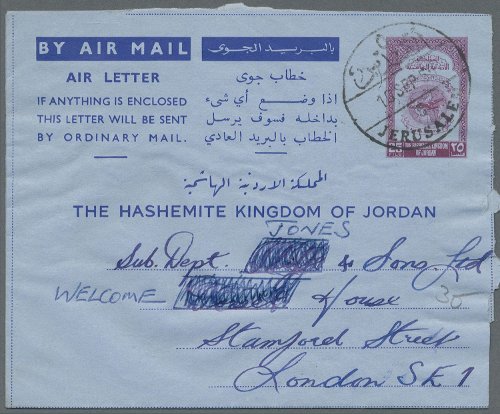 BY AIR MAIL بالبريد الجوى
AIR LETTER
IF ANYTHING IS ENCLOSED
THIS LETTER WILL BE SENT
BY ORDINARY MAIL.
خطاب جوى
اذا وضع أي شىء
بداخله فسوف يرسل
الخطاب بالبريد العادي
JERUSALEM
THE HASHEMITE KINGDOM OF JORDAN
٢٥
المملكة الاردنية الهاشمية
THE HASHEMITE KINGDOM OF JORDAN
JONES
Sub. Dept. & Sons Ltd
WELCOME House
30
Stamford Street
London SE1